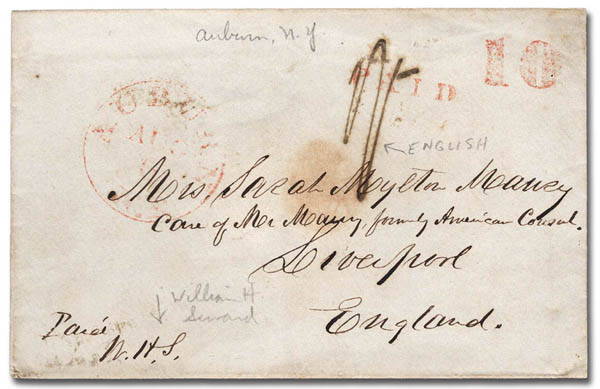 auburn, N.Y.
PAID
10
AUBURN
AUG
← ENGLISH
Mrs. Sarah Mytton Maury
Care of Mr Maury, formerly American Consul.
Liverpool
England.
↓ William H
Seward
Paid
W.H.S.